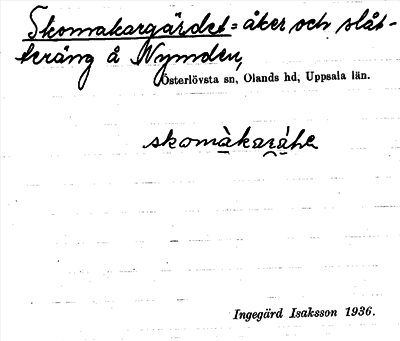 Skomakargärdet = åker och slåt-
teräng å Nymden,
Österlövsta sn, Olands hd, Uppsala län.
Ingegärd Isaksson 1936.